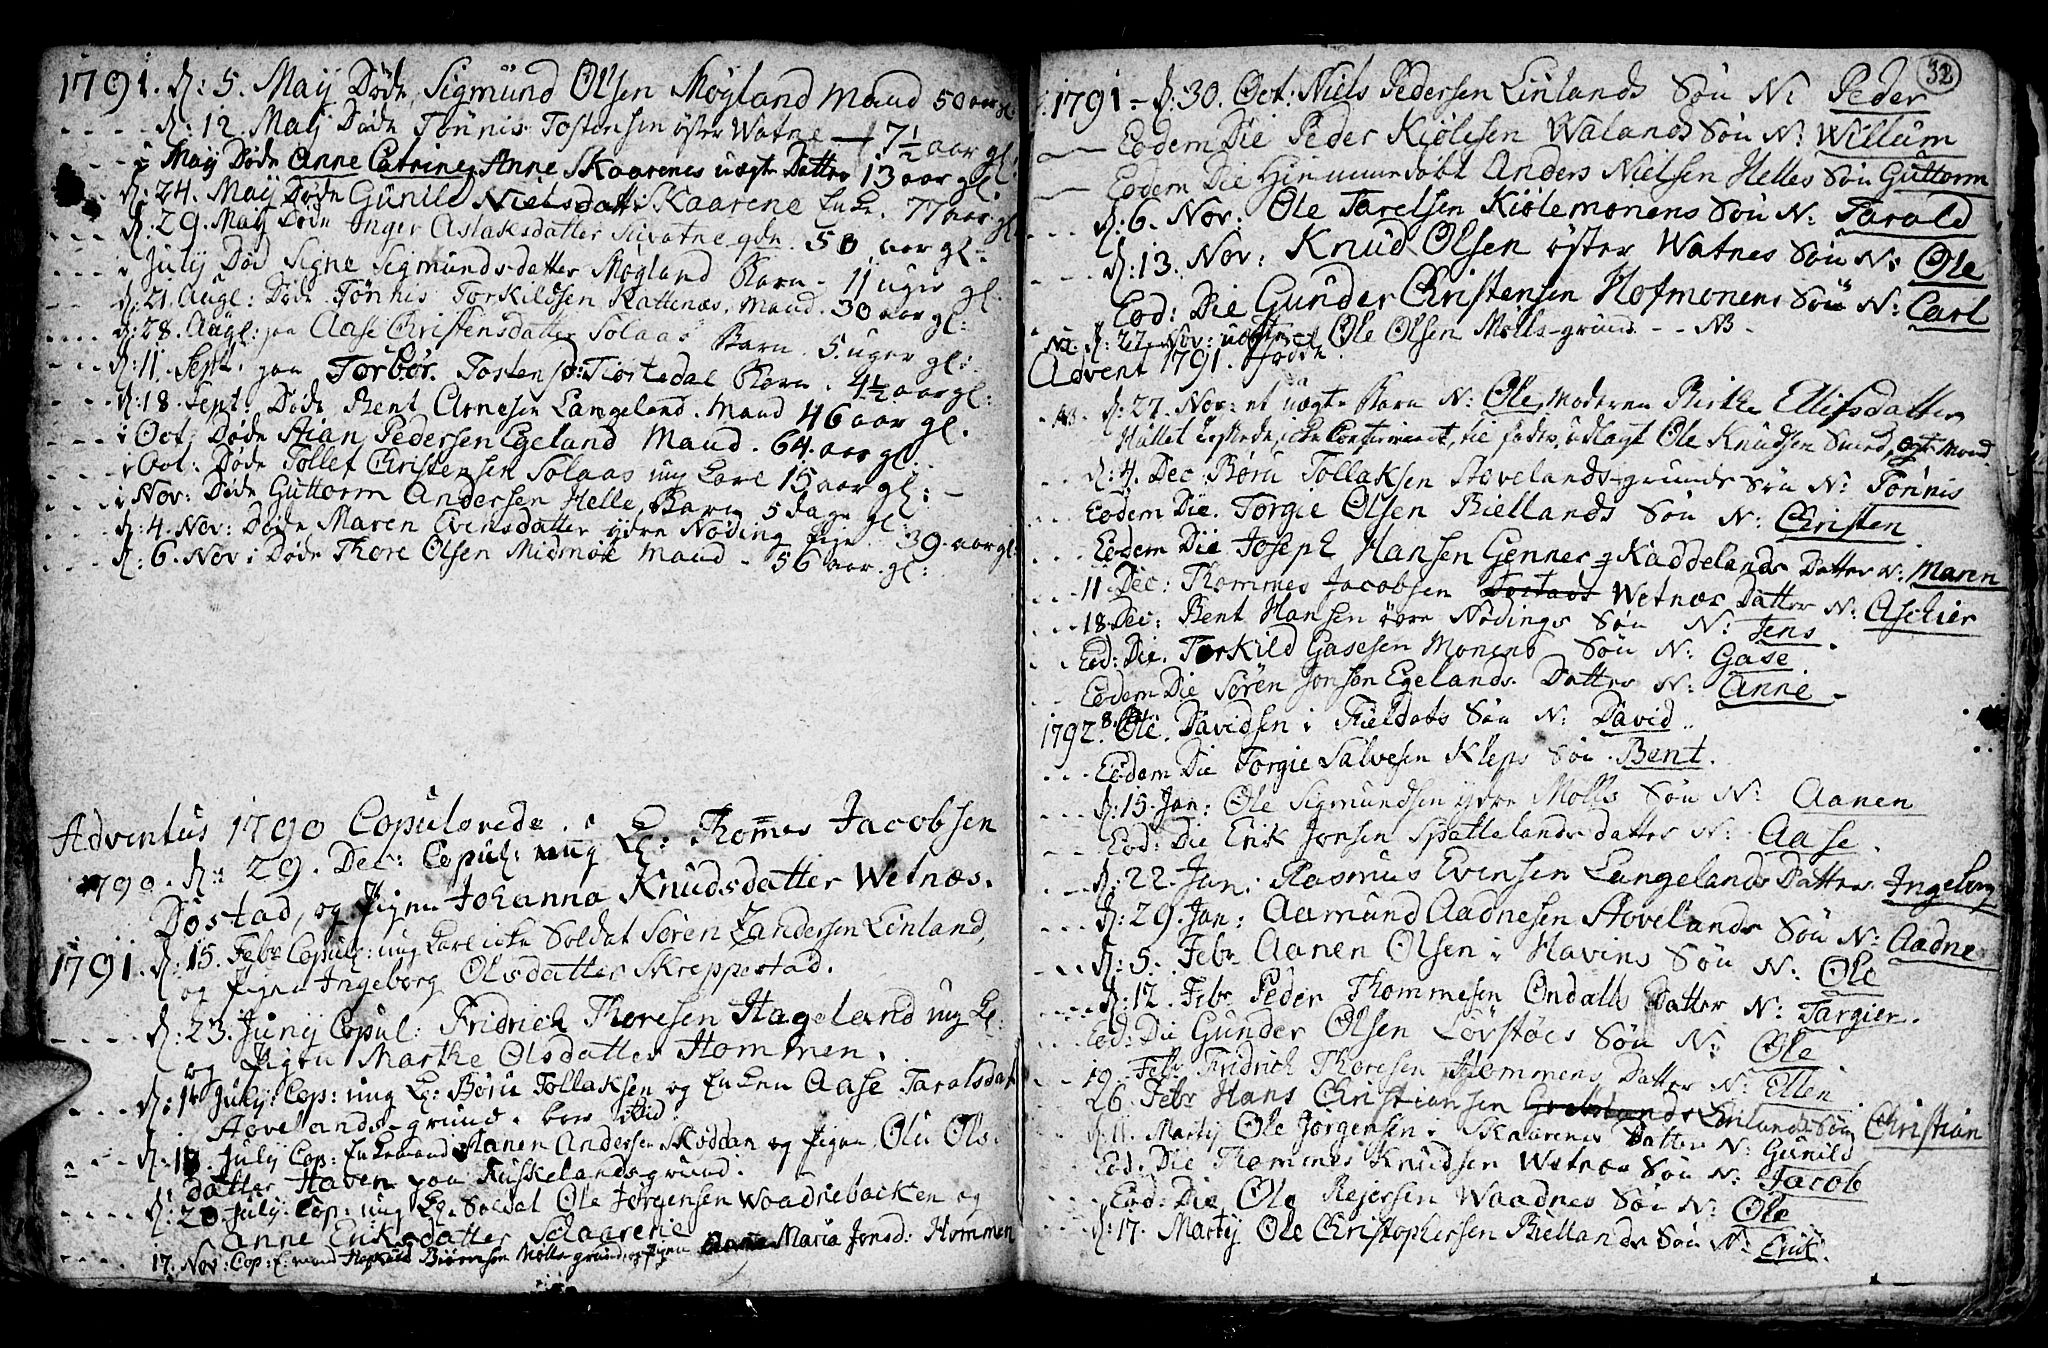 1791. D: 5. Maij Døde Sigmund Olsen Møgland Mand 50 aar gl:
D: 12. Maij Døde Tønnis Tostensen øster Watne 7½ aar gl:
i Maij Døde Anne Catrine Anne Skaarenes uægte Datter 13 aar gl:
D: 24. Maij Døde Gunild Nielsdatter Skaarene Enke. 77 aar gl
D: 29. Maij Døde Inger Aslaksdatter 50. aar gl:
i July Død Signe Sigmundsdatter Møgland Barn. 11 uger gl:
D: 21. Augl: Døde Tønnis Torkildsen Kattenæs, Mand. 30 aar gl:
D: 28. Augl: paa Aase Christensdatter Solaas Barn. 5. uger gl:
D: 11. Sept. paa Torbor Tostensd: Tiostedal Barn. 4½ aar gl:
D: 18. Sept: Døde Bent Arnesen Langeland. Mand 46 aar gl.
i Oct: Døde Stian Pedersen Egeland Mand. 64. aar gl.
i Oct: Døde Tollef Christensen Solaas ung Karl 15 aar gl: -
i Nov: Døde Guttorm Andersen Helle, Barn 5 dage gl:
D: 4. Nov: Døde Maren Evensdatter ydre Nøding Pige. 39. aar gl:
D: 6. Nov: Døde Thore Olsen Midmoe Mand - 56 aar. gl:
Adventus 1790 Copulerede.
1790. D: 29. Dec: Copul: ung K: Thommes Jacobsen
Dostad, og Pigen Johanna Knudsdatter Wetnæs.
1791. D: 15. Febr Copul: ung Karl icke Soldat Søren Zandersen Linland,
og Pigen Ingeborg Olsdatter Skreppestad.
D: 23. Junij Copul: Fridrich Thoresen Hageland ung K:
og Pigen Marthe Olsdatter Hommen.
D: 14 July: Cop: ung K: Børu Tollaksen og Enken Aase Taralsdatt
Hovelands-grund.
D: July Cop: Enkemand Aanen Andersen Skoddan og Pigen Olu Ols-
datter Haven paa Ruskelandsgrund.
D: 20 July: Cop: ung K. Soldat Ole Jørgensen Woadnebacken og
Anne Eriksdatter Schaarene
17. Nov: Cop: E: mand Biørensen Molls-grund, og Pigen Maria Jonsd: Hommen
32
1791 - D: 30. Oct: Niels Pedersen Linlands Søn N: Peder
Eodem Die Peder Kiølesen Walands Søn N: Willum
Eodem Die Hiemmedøbt Anders Nielsen Helles Søn Guttorm
D: 6. Nov: Ole Tarelsen Kiølemonens Søn N: Tarald
D: 13. Nov: Knud Olsen øster Watnes Søn N: Ole
Eod: Die Gunder Christensen Hofmonens Søn N: Carl
N2. D: 27. Nov: uægte Ole Olsen Molls-grund. - - NB -
Advent 1791. fødde.
NB. D: 27. Nov: et uægte Barn N: Ole, Moderen Birthe Ellifsdatter
Hullet confirmeret, til fader udlagt Ole Knudsen Smed, gift Mand.
D: 4. Dec Børu Tollaksen Hovelands-grunds Søn N: Tønnis
Eodem Die. Torgie Olsen Biellands Søn N: Christen
Eodem Die Joseph Hansen Genner Kaddelands Datter N: Maren
11. Dec: Thommes Jacobsen Dostads Wetnæs Datter N: Aschier
18. Dec: Bent Hansen øvre Nødings Søn N: Jens
Eod: Die. Torkild Gasesen Monens Søn N: Gase
Eodem Die Søren Jonsen Egelands Datter N: Anne -
1792. 8. Jan: Ole Davidsen i Fieldats Søn N: David.
Eodem Die Torgie Salvesen Kleps Søn. Bent.
D: 15. Jan: Ole Sigmundsen ydre Molls Søn N: Aanen
Eod: Die Erik Jonsen Spattelands datter N: Aase.
D: 22. Jan. Rasmus Evensen Langelands Datter. Ingeborg
D: 29. Jan: Aamund Aadnesen Hovelands Søn N: Aadne
D: 5. Febr Aanen Olsen i Havens Søn N: Ole
D: 12. Febr. Peder Thommesen Ondalls Datter N: Targier.
Eod: Die Gunder Olsen Løvstøes Søn N: Ole
19. Febr Fridrich Thoresen Hommens Datter N: Ellen
26. Febr Hans Christiansen Linlands Søn Christian
D: 11. Martij Ole Jørgensen Skaarenes Datter N: Gunild
Eod: Die Thommes Knudsen Wetnæs Søn N: Jacob
Eod: Die Ole Rejersen Woadnes Søn N: Ole
D: 17. Martij Ole Christophersen Biellands Søn N: Erik.